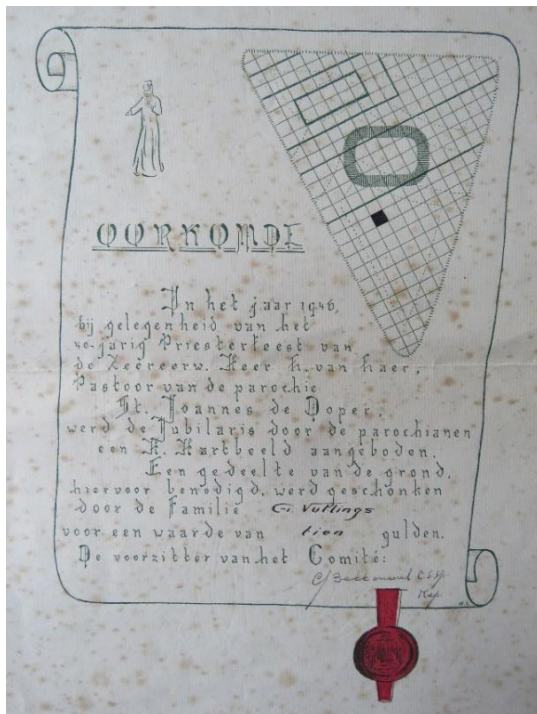 OORKONDE
In het jaar 1946,
bij gelegenheid van het
40-jarig Priesterfeest van
de Zeereerw. Heer H. van Haer,
Pastoor van de parochie
St. Joannes de Doper,
werd de Jubilaris door de parochianen
een H. Hartbeeld aangeboden.
Een gedeelte van de grond,
hiervoor benodigd, werd geschonken
door de Familie G. Vullings
voor een waarde van tien gulden.
De voorzitter van het Comité:
Kap.